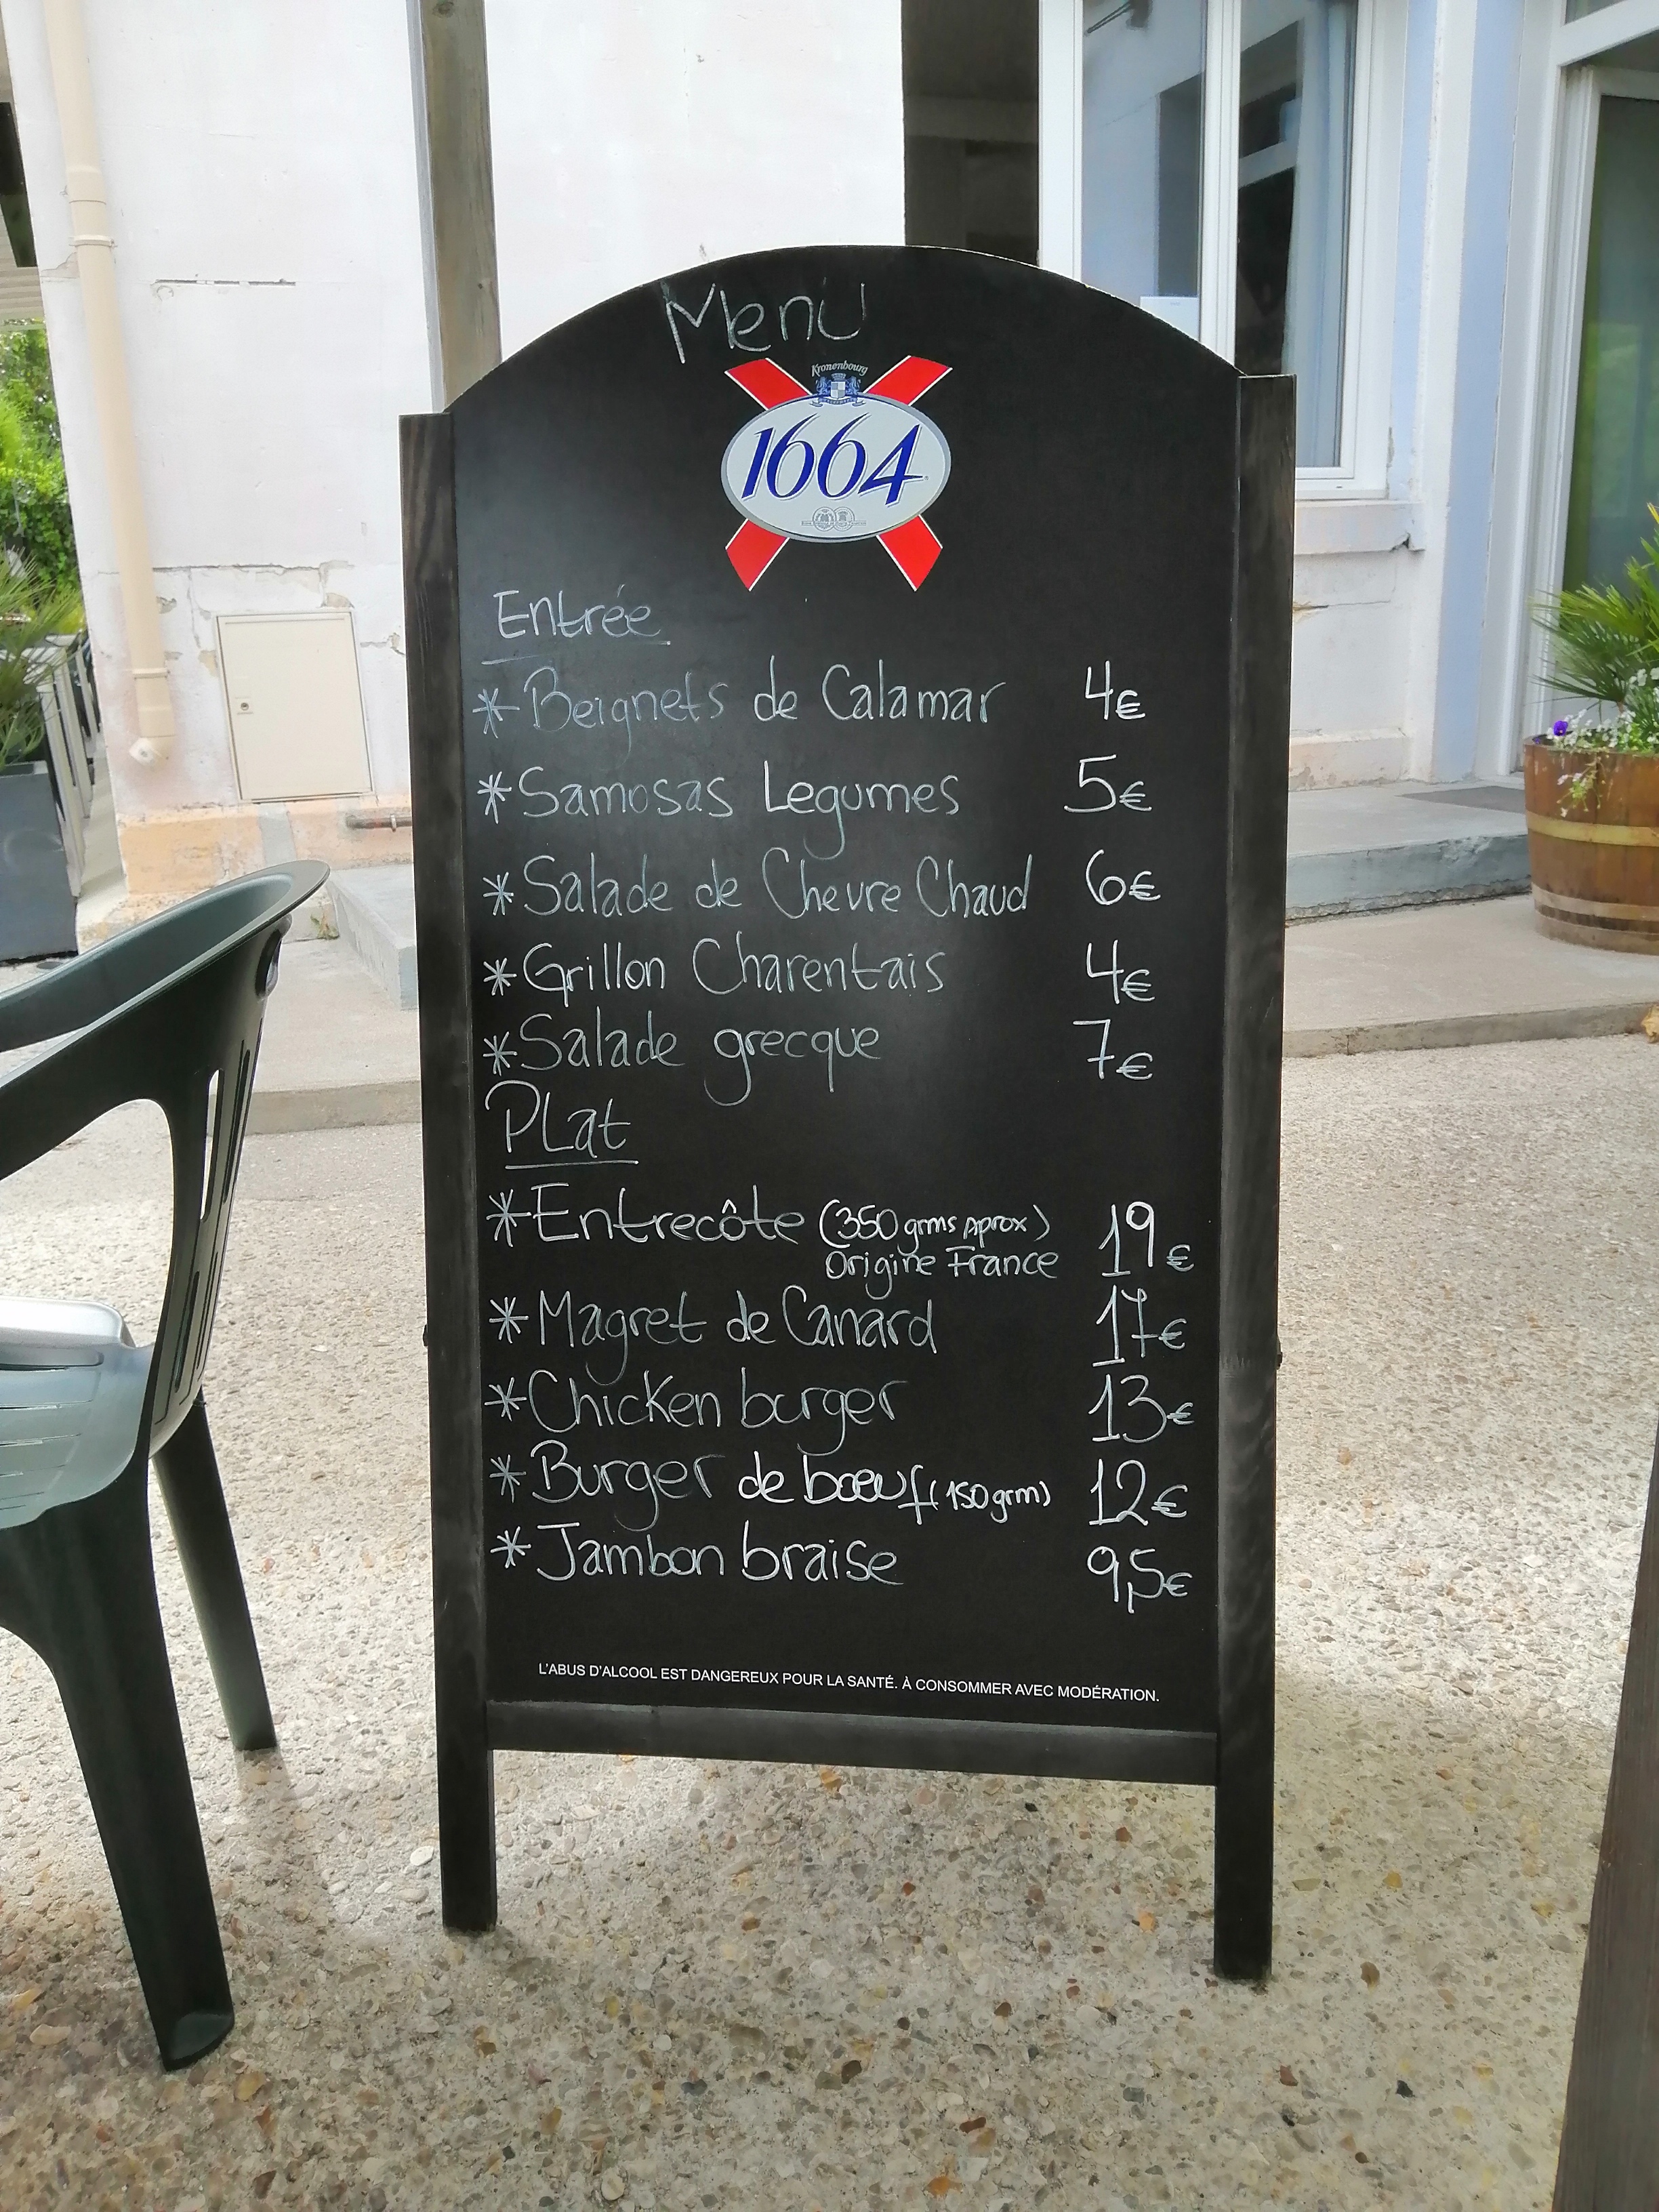 Menu
Kronenbourg
1664
Entrée
* Beignets de Calamar 4€
* Samosas Legumes 5€
* Salade de Chevre Chaud 6€
* Grillon Charentais 4€
* Salade grecque 7€
PLat
* Entrecôte (350 grms Aprox) 19€
Origine France
* Magret de Canard 17€
* Chicken burger 13€
* Burger de bœuf (150 grm) 12€
* Jambon braise 9,5€
L'ABUS D'ALCOOL EST DANGEREUX POUR LA SANTÉ. À CONSOMMER AVEC MODÉRATION.